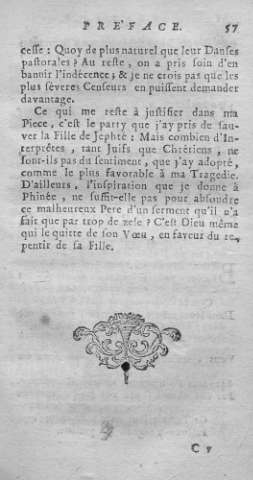 PRE'FACE. 57
cesse : Quoy de plus naturel que leur Danses
pastorales ? Au reste, on a pris soin d'en
bannir l'indécence ; & je ne crois pas que les
plus sèveres Censeurs en puissent demander
davantage.
Ce qui me reste à justifier dans ma
Piece, c'est le party que j'ay pris de sau-
ver la Fille de Jephté : Mais combien d'In-
terprêtes, tant Juifs que Chrêtiens, ne
sont-ils pas du sentiment, que j'ay adopté,
comme le plus favorable à ma Tragedie.
D'ailleurs, l'inspiration que je donne à
Phinée, ne suffit-elle pas pour absoudre
ce malheureux Pere d'un serment qu'il n'a
fait que par trop de zele ? C'est Dieu même
qui le quitte de son Vœu, en faveur du re-
pentir de sa Fille.
C v